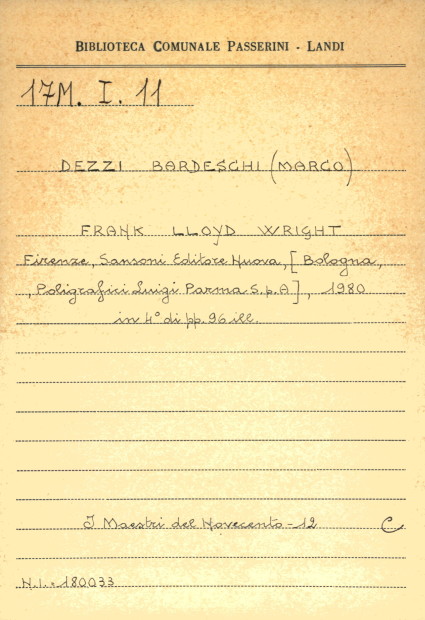 BIBLIOTECA COMUNALE PASSERINI - LANDI
17M. I. 11
DEZZI BARDESCHI (MARCO)
FRANK LLOYD WRIGHT
Firenze, Sansoni Editore Nuova, [Bologna,
, Poligrafici Luigi Parma S.p.A], 1980
in 4° di pp. 96 ill.
I Maestri del Novecento - 12 C
N.I. = 180033